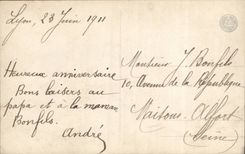 Lyon, 23 Juin 1911
Heureux anniversaire
Bons baisers au
papa et à la maman
Bonfils.
André
Monsieur J Bonfils
10, Avenue de la République
Maisons-Alfort
(Seine)